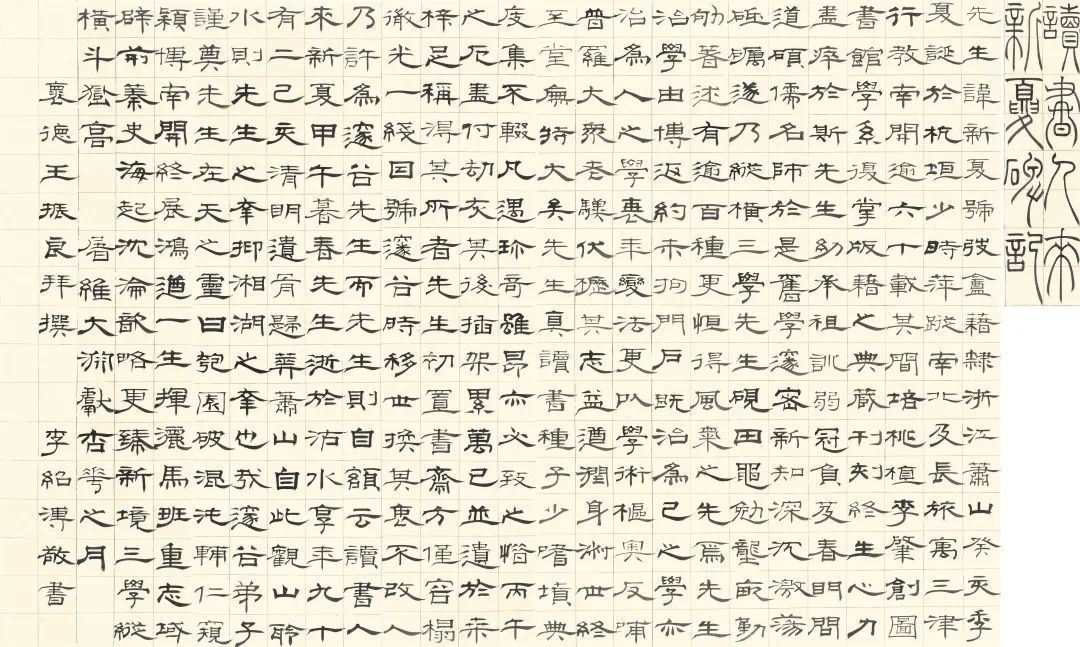 讀書人來
新夏碑記
先生諱新夏號弢盦籍隸浙江蕭山癸亥季
夏誕於杭垣少時萍蹤南北及長旅寓三津
行教南開逾六十載其間培桃植李肇創圖
書館學系復掌版藉之典藏刊刻終生心力
盡瘁於斯先生幼承祖訓弱冠負笈春明問
道碩儒名師於是舊學邃密新知深沉激蕩
砥礪遂乃縱橫三學先生硯田黽勉壟畝勤
劬著述有逾百種更恒得風氣之先焉先生
治學由博返約未拘門戶既治為己之學亦
治為人之學衰年變法更以學術樞奧反哺
普羅大眾老驥伏櫪其志益遒潤身淑世終
至堂廡特大矣先生真讀書種子少嗜墳典
度集不輟凡遇珍奇雖昂亦必致之惜丙午
之厄盡付劫灰其後插架累萬已並遺於來
梓足稱淂其所者先生初置書齋方僅容榻
徹光一綫囙號邃谷時移世換其衷不改人
乃許為邃谷先生而先生則自額云讀書人
來新夏甲午暮春先生逝於沽水享年九十
有二己亥清明遺骨歸葬蕭山自此觀山聆
水則先生之幸抑湘湖之幸也哉邃谷弟子
謹奠先生在天之靈曰匏園破混沌輔仁窺
穎博南開終展鴻遒一生揮灑馬班重志域
辟前纂史海起沈淪歆略更臻新境三學縱
橫斗嶽高 屠維大淵獻杏花之月
襄德王振良拜撰 李紹溥敬書